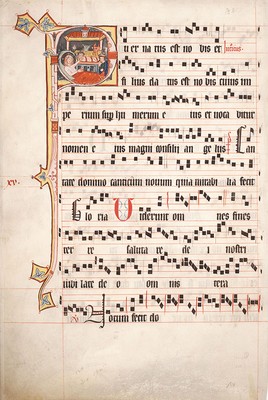 u er na tus est no bis et
fi lius da tus est no bis cuius im
pe rium sup hu merum e ius et vocabitur
nomen e ius magni consilij an ge lus Can
tate domino canticum novum quia mirabi lia fecit
xv.
Glo ria Viderunt om nes fines
ter re saluta re de i nostri
iubi late de o om nis terra
Notum fecit do